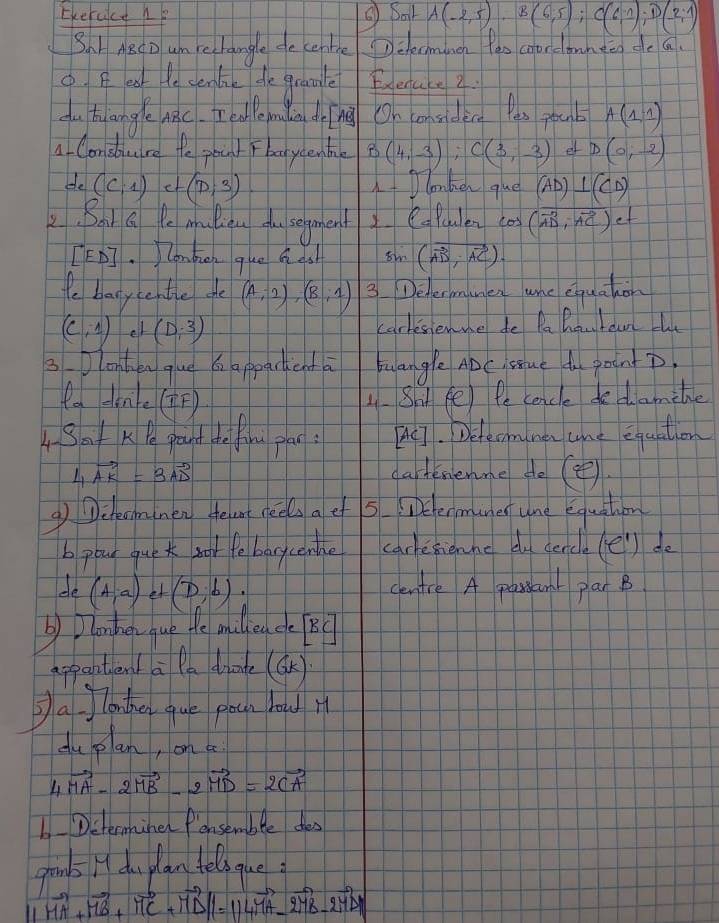 Exercice 1 :
Soit ABCD un rectangle de centre
O. E est le centre de gravité
du triangle ABC - I est le milieu de [AB]
1- Construire le point F barycentre
de (C,1) et (D,3)
2- Soit G le milieu du segment
[ED]. Montrer que G est
le barycentre de (A,2), (B,1)
(C,1) et (D,3)
3- Montrer que G appartient à
la droite (IF)
4- Soit K le point défini par :
4AK = 3AD
a) Déterminer deux réels a et
b pour que K soit le barycentre
de (A,a) et (D,b).
b) Montrer que le milieu de [BC]
appartient à la droite (GK).
5) a- Montrer que pour tout M
du plan, on a :
4MA - 2MB - 2MD = 2CA
b- Déterminer l'ensemble des
points M du plan tels que :
||MA + MB + MC + MD|| = ||4MA - 2MB - 2MD||
6) Soit A(-2,5), B(6,5) ; C(6,1) ; D(-2,1)
Déterminer les coordonnées de G.
Exercice 2 :
On considère les points A(1,1)
B(4,-3) ; C(3,-3) et D(0,-2)
1- Montrer que (AD) ⊥ (CD)
2- Calculer cos(AB ; AC) et
sin (AB ; AC).
3- Déterminer une équation
cartésienne de la hauteur du
triangle ADC issue du point D.
4- Soit (C) le cercle de diamètre
[AC]. Déterminer une équation
cartésienne de (C).
5- Déterminer une équation
cartésienne du cercle (C') de
centre A passant par B.